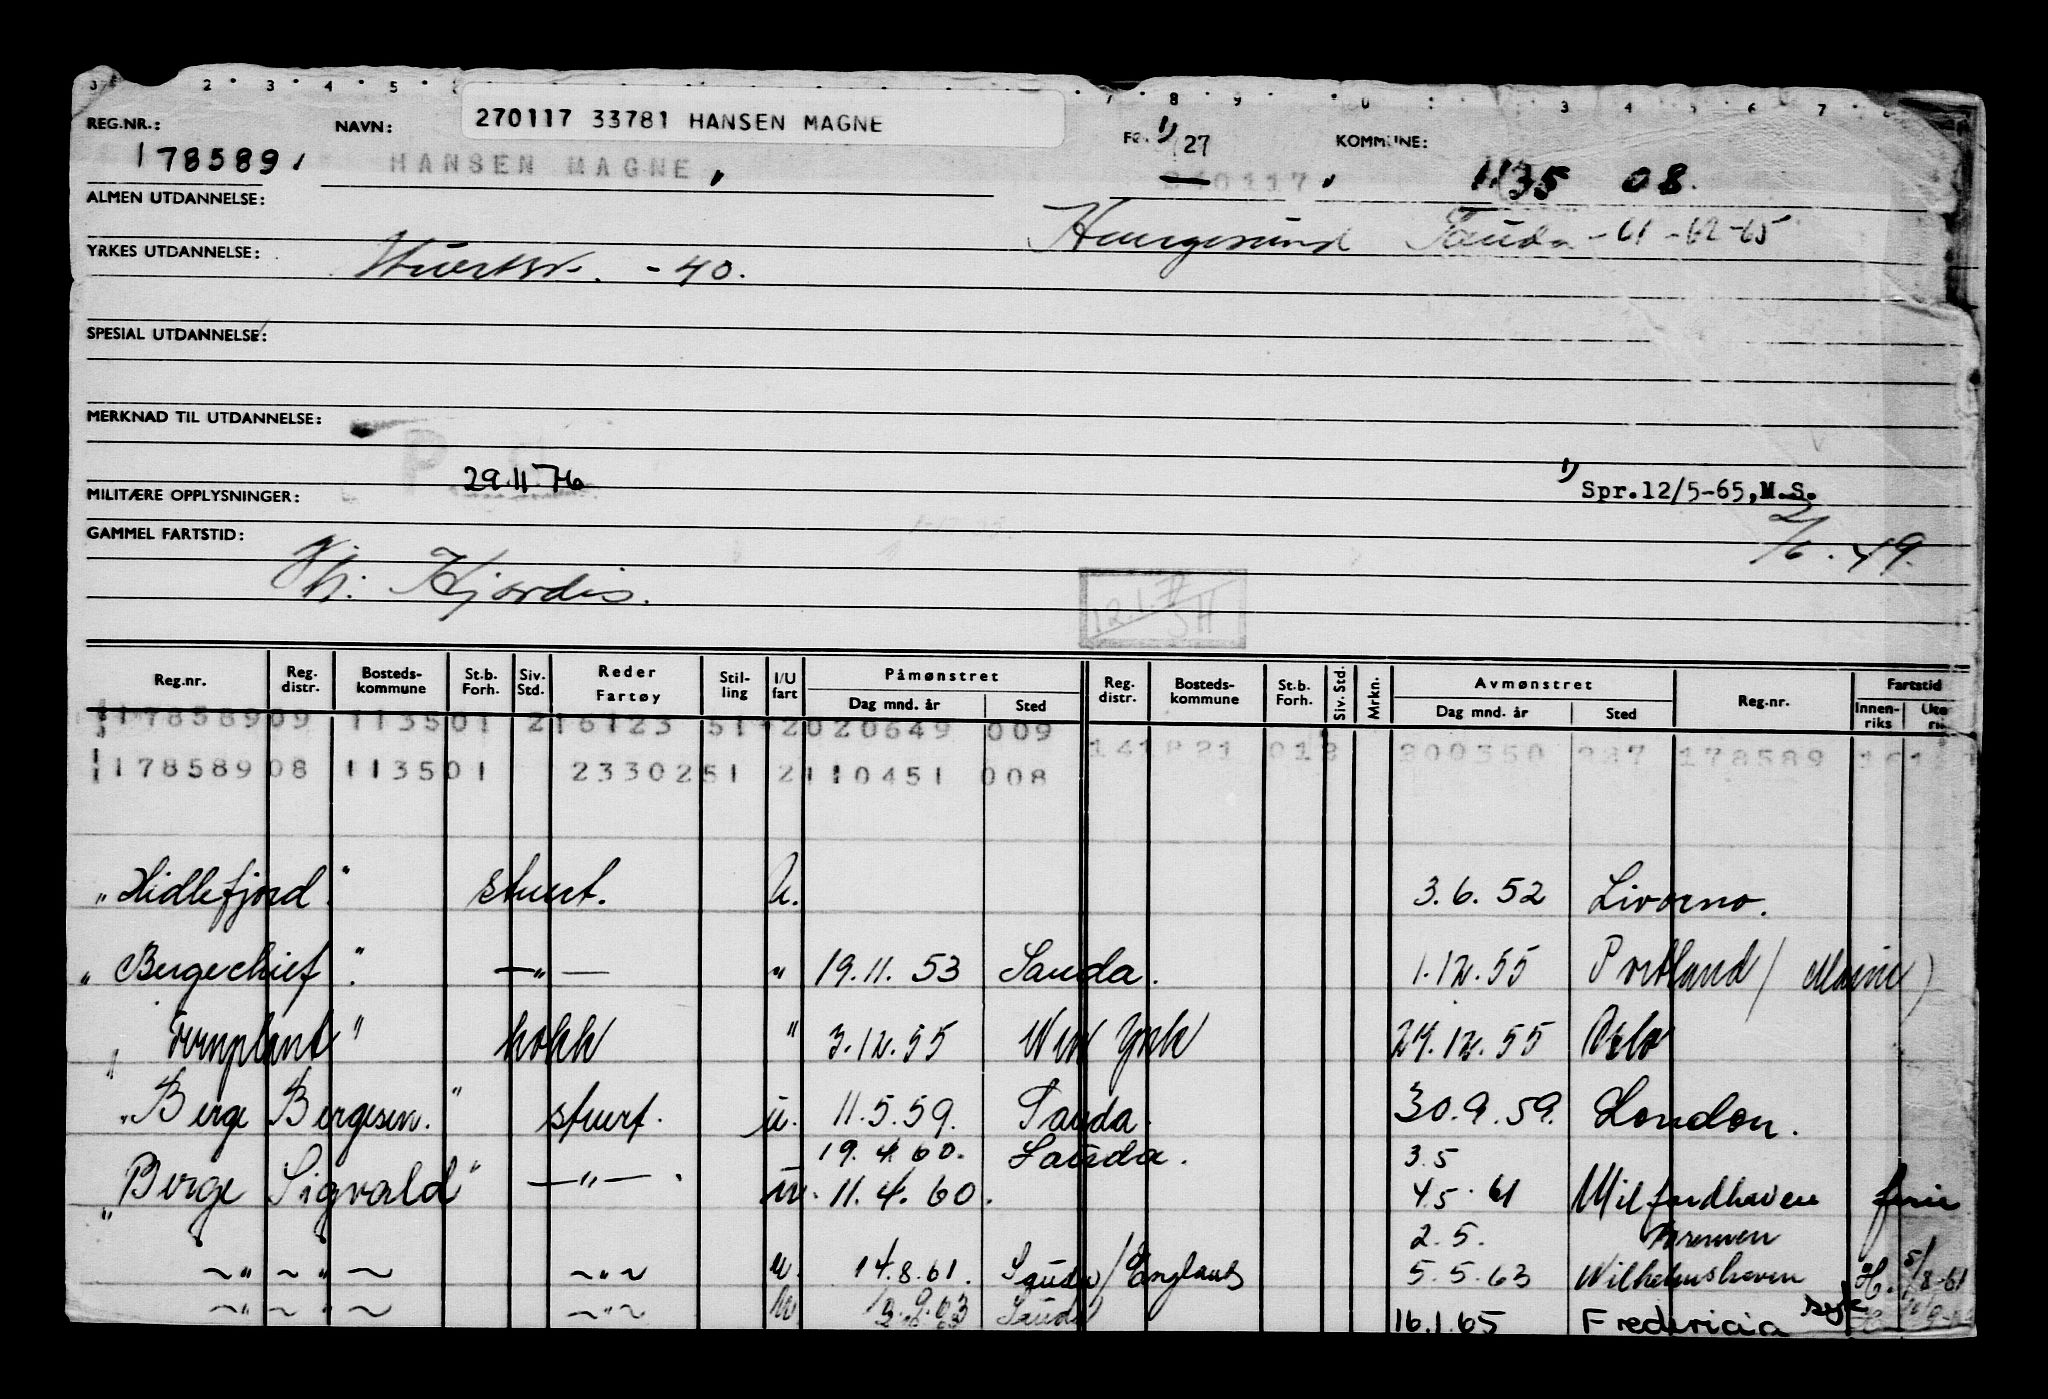 270117 33781 HANSEN MAGNE
REG.NR.: NAVN: KOMMUNE:
178589 HANSEN MAGNE, 1) 27 0117 1135 08.
ALMEN UTDANNELSE: Haugesund Sauda -61-62-65
YRKES UTDANNELSE: Stuertsk. -40.
SPESIAL UTDANNELSE:
MERKNAD TIL UTDANNELSE:
MILITÆRE OPPLYSNINGER: 29.11.76 1) Spr.12/5-65, M.S.
GAMMEL FARTSTID: 2/6.49.
Hj. Hjørdis.
Reg.nr. Reg. distr. Bosteds-kommune St.b. Forh. Siv. Std. Reder Fartøy Stil-ling I/U fart Påmønstret Dag mnd. år Sted Reg. distr. Bosteds-kommune St.b. Forh. Siv. Std. Mrkn. Avmønstret Dag mnd. år Sted Reg.nr. Fartstid Innen-riks
178589 09 1135 01 216123 51 2 020649 009
178589 08 1135 01 23302 51 2 110451 008 200350 178589
"Hidlefjord." stuert. U. 3.6.52 Livorno.
"Bergechief". —"— " 19.11.53 Sauda. 1.12.55 Portland (Maine)
"Fernplant" kokk " 3.12.55 New York 29.12.55 Oslo
"Berge Bergesen." stuert. u. 11.5.59. Sauda. 30.9.59. London.
19.4.60. Sauda. 3.5
"Berge Sigvald" —"—. u. 11.4.60. 4.5.61 Milfordhaven ferie
2.5. Bremen
~"~"~ ~"~ u. 14.8.61. Sauda/England 5.5.63 Wilhelmshaven H. 5/8-61
~"~"~ ~"~ u Sauda 16.1.65 Fredericia syk